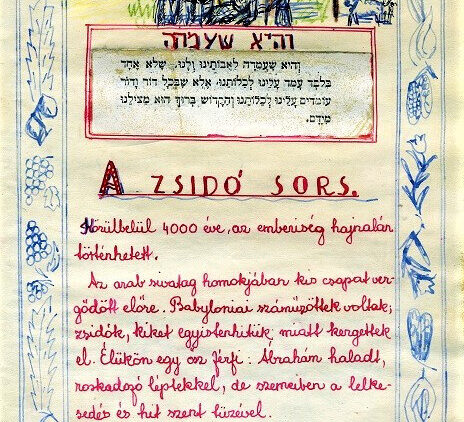 והיא שעמדה
וְהִיא שֶׁעָמְדָה לַאֲבוֹתֵינוּ וְלָנוּ. שֶׁלֹּא אֶחָד
בִּלְבָד עָמַד עָלֵינוּ לְכַלּוֹתֵנוּ. אֶלָּא שֶׁבְּכָל דּוֹר וָדוֹר
עוֹמְדִים עָלֵינוּ לְכַלּוֹתֵנוּ וְהַקָּדוֹשׁ בָּרוּךְ הוּא מַצִּילֵנוּ
מִיָּדָם.
A ZSIDÓ SORS.
Körülbelül 4000 éve, az emberiség hajnalán
történhetett.
Az arab sivatag homokjában kis csapat ver-
gődött előre. Babyloniai száműzöttek voltak,
zsidók, kiket egyistenhitük miatt kergettek
el. Élükön egy ősz férfi: Ábrahám haladt,
roskadozó léptekkel, de szemeiben a lelke-
sedés és hit szent tüzével.